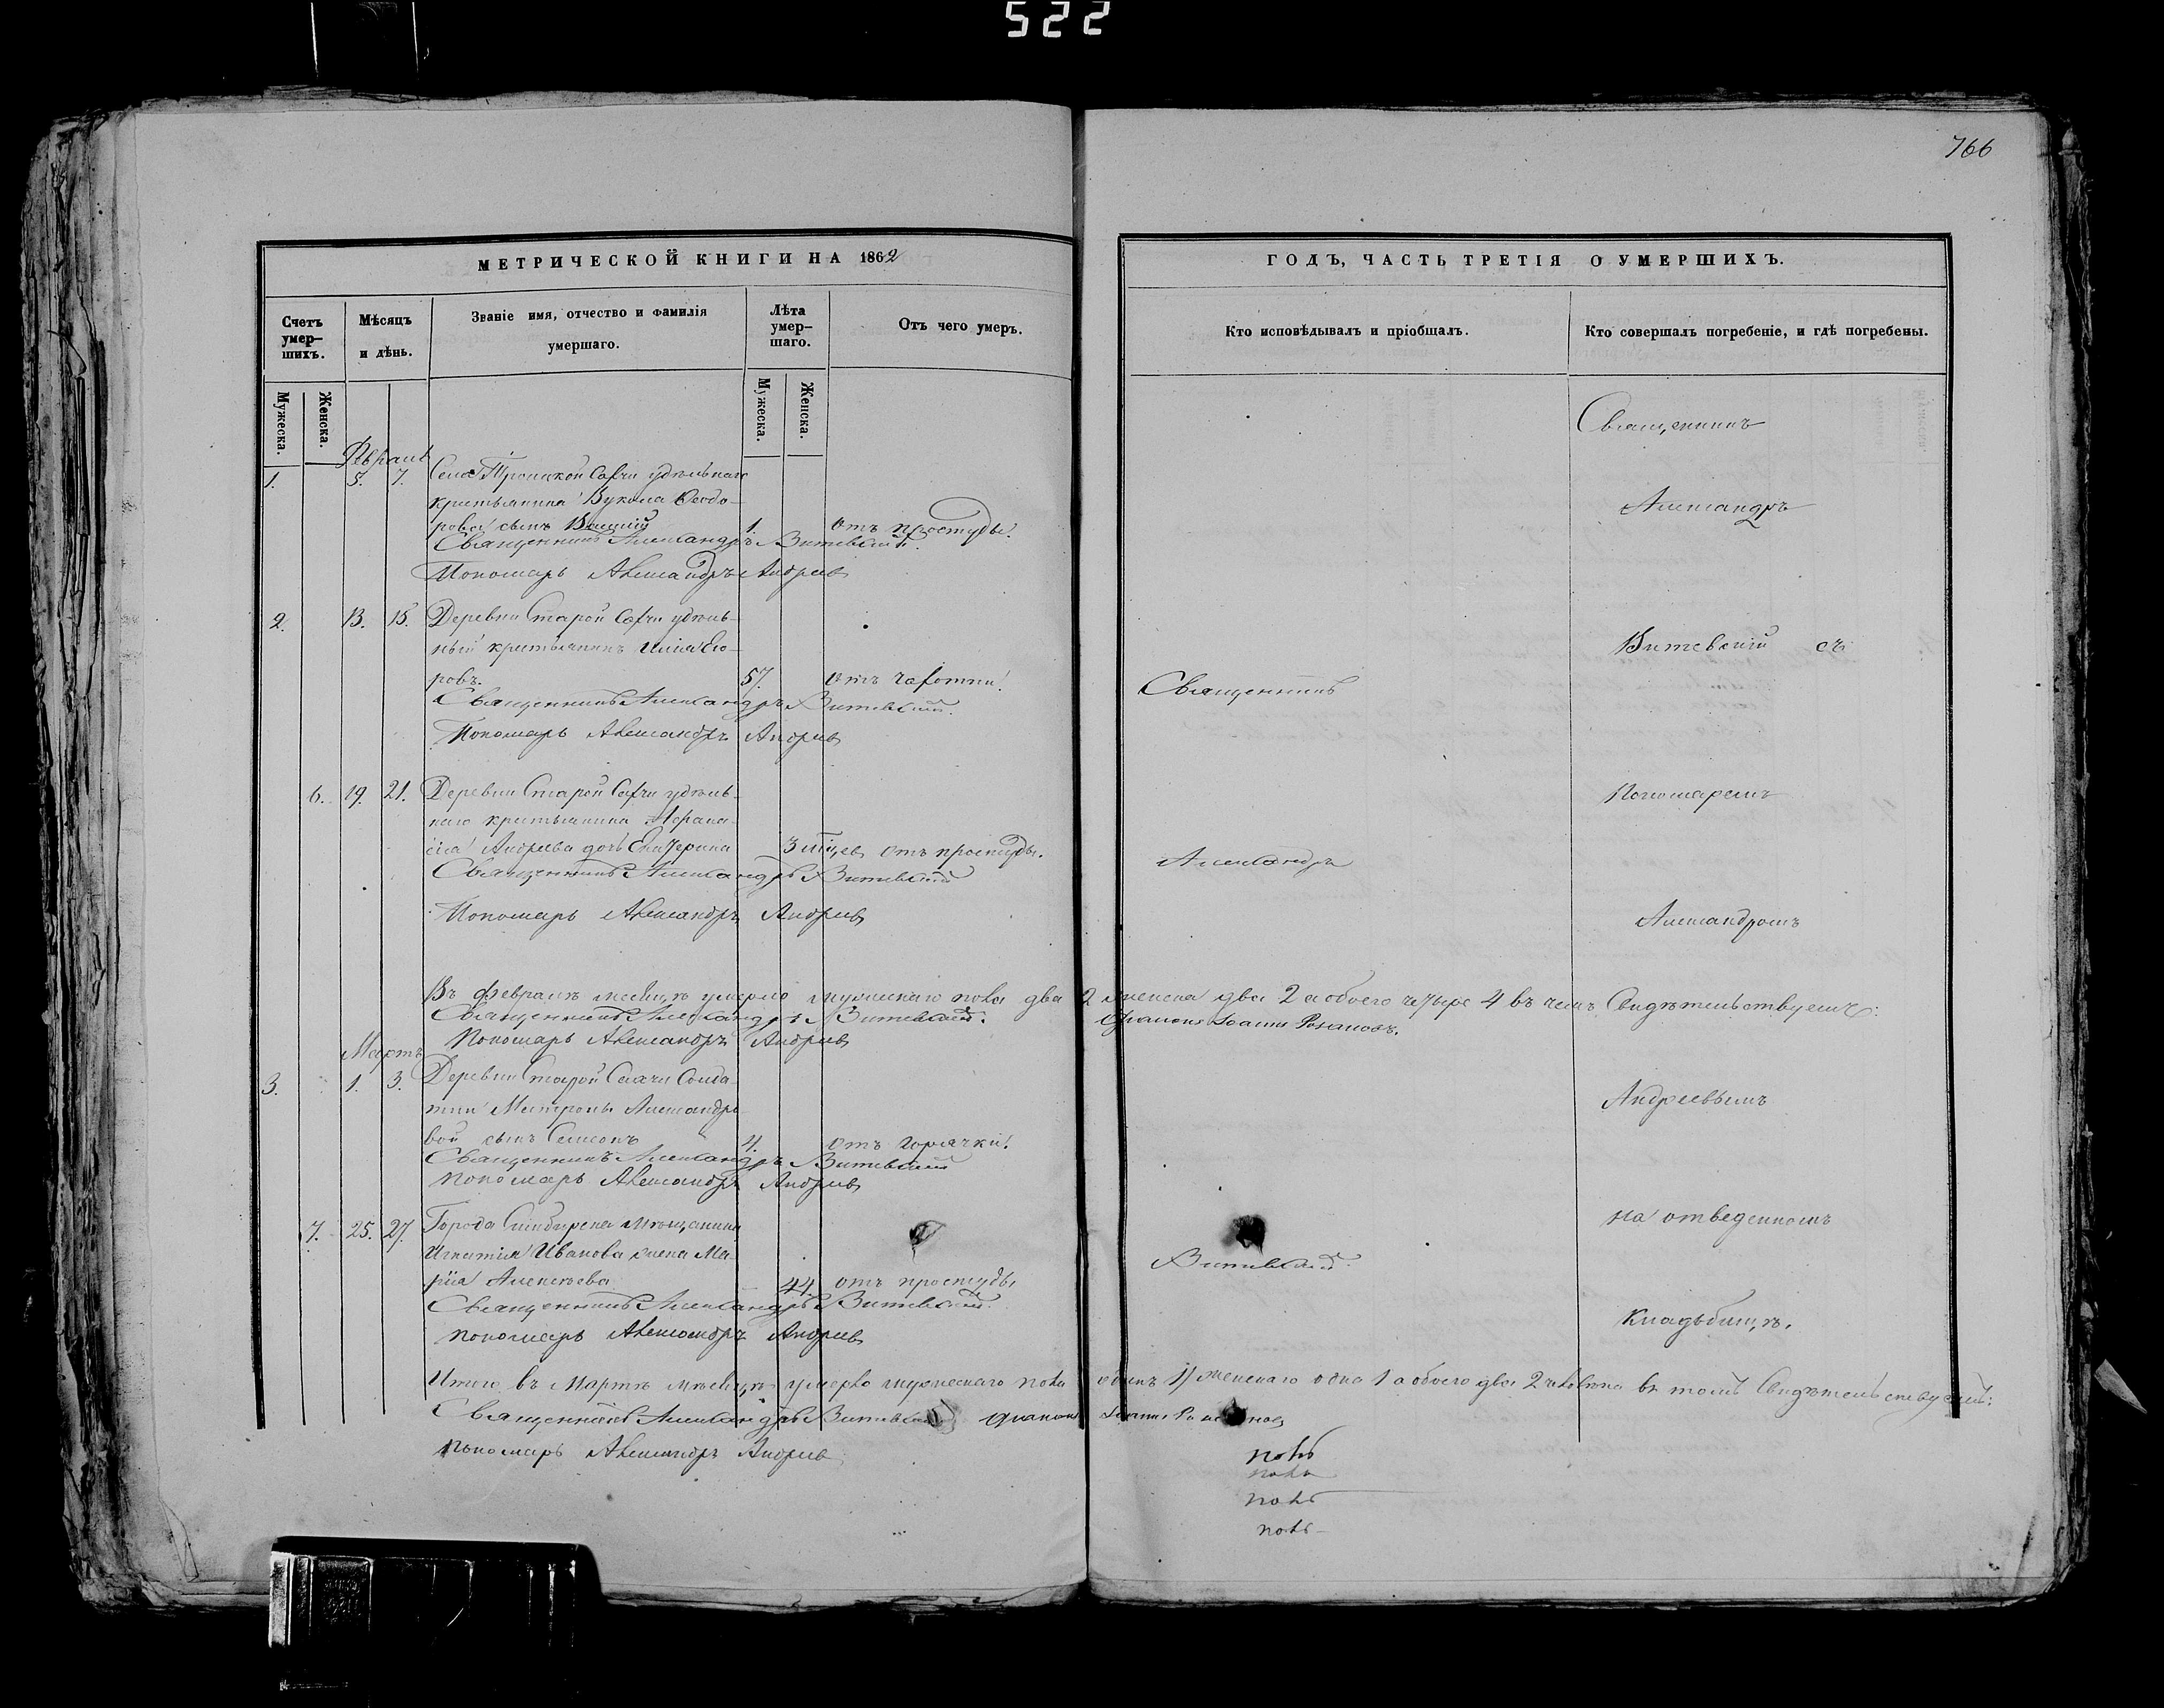 522
766
МЕТРИЧЕСКОЙ КНИГИ НА 1862
ГОДЪ, ЧАСТЬ ТРЕТІЯ О УМЕРШИХЪ.
Счетъ умер–шихъ.
Мѣсяцъ и дѣнь.
Званіе имя, отчество и фамилія умершаго.
Лѣта умер–шаго.
Отъ чего умеръ.
Кто исповѣдывалъ и пріобщалъ.
Кто совершалъ погребеніе, и гдѣ погребены.
Мужеска.
Женска.
Мужеска.
Женска.
Февраль
1. 5. 7. Села Троицкой удѣльнаго
крестьянина Вукола Ѳеодо-
рова сынъ 1. отъ простуды.
Священникъ Александръ Витевскій.
Пономарь Александръ Андреевъ
2. 13. 15. Деревни Старой удѣль-
ный крестьянинъ
ровъ. 57. отъ чахотки.
Священникъ Александръ Витевскій.
Пономарь Александръ Андреевъ
6. 19. 21. Деревни Старой удѣль-
наго крестьянина Аѳана-
сія Андреева дочь Екатерина 3 мѣс. отъ простуды.
Священникъ Александръ Витевскій
Пономарь Александръ Андреевъ
Въ февралѣ мѣсяцѣ умерло мужескаго пола два 2 женска два 2 а обоего четыре 4 въ чемъ Свидѣтельствуемъ:
Священникъ Александръ Витевскій. Діаконъ Іоаннъ Романовъ.
Пономарь Александръ Андреевъ
Мартъ
3. 1. 3. Деревни Старой Солда-
тки Матроны Александро-
вой сынъ 4. отъ горячки.
Священникъ Александръ Витевскій
Пономарь Александръ Андреевъ
7. 25. 27. Города Симбирска мѣщанина
Игнатія Иванова жена Ма-
рія Алексѣева 44. отъ простуды
Священникъ Александръ Витевскій.
Пономарь Александръ Андреевъ
Итого въ Мартѣ мѣсяцѣ умерло мужескаго пола одинъ 1 женскаго одна 1 а обоего два 2 человѣка въ томъ Свидѣтельствуемъ:
Священникъ Александръ Витевскій Діаконъ Іоаннъ Романовъ
Пономарь Александръ Андреевъ
Священникъ
Александръ
Витевскій.
Священникъ
Александръ
Витевскій съ
Пономаремъ
Александромъ
Андреевымъ
на отведенномъ
кладбищѣ.